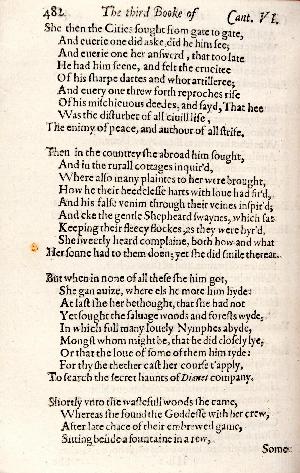 482 The third Booke of Cant. VI.
She then the Cities sought from gate to gate,
And euerie one did aske, did he him see;
And euerie one her answerd, that too late
He had him seene, and felt the crueltee
Of his sharpe dartes and whot artilleree;
And euery one threw forth reproches rife
Of his mischieuous deedes, and sayd, That hee
Was the disturber of all ciuill life,
The enimy of peace, and authour of all strife.
Then in the countrey she abroad him sought,
And in the rurall cottages inquir'd,
Where also many plaintes to her were brought,
How he their heedelesse harts with loue had fir'd,
And his false venim through their veines inspir'd;
And eke the gentle Shepheard swaynes, which sat
Keeping their fleecy flockes, as they were hyr'd,
She sweetly heard complaine, both how and what
Her sonne had to them doen; yet she did smile thereat.
But when in none of all these she him got,
She gan auize, where els he mote him hyde:
At last she her bethought, that she had not
Yet sought the saluage woods and forests wyde,
In which full many louely Nymphes abyde,
Mongst whom might be, that he did closely lye,
Or that the loue of some of them him tyde:
For thy she thether cast her course t'apply,
To search the secret haunts of Dianes company.
Shortly vnto the wastefull woods she came,
Whereas she found the Goddesse with her crew,
After late chace of their embrewed game,
Sitting beside a fountaine in a rew,
Some